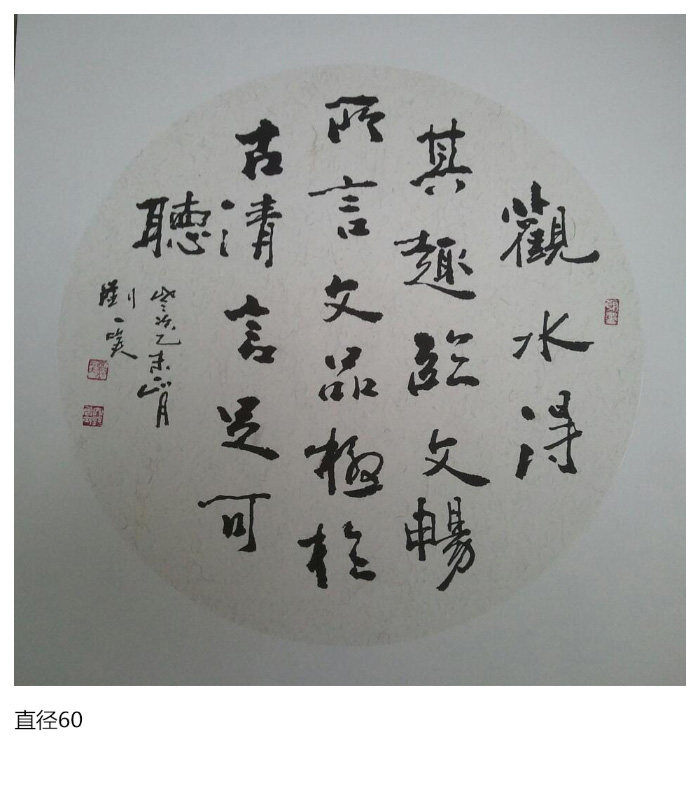 觀水得
其趣臨文暢
所言文品極於
古清言足可
聽
歲次乙未 月
直径60